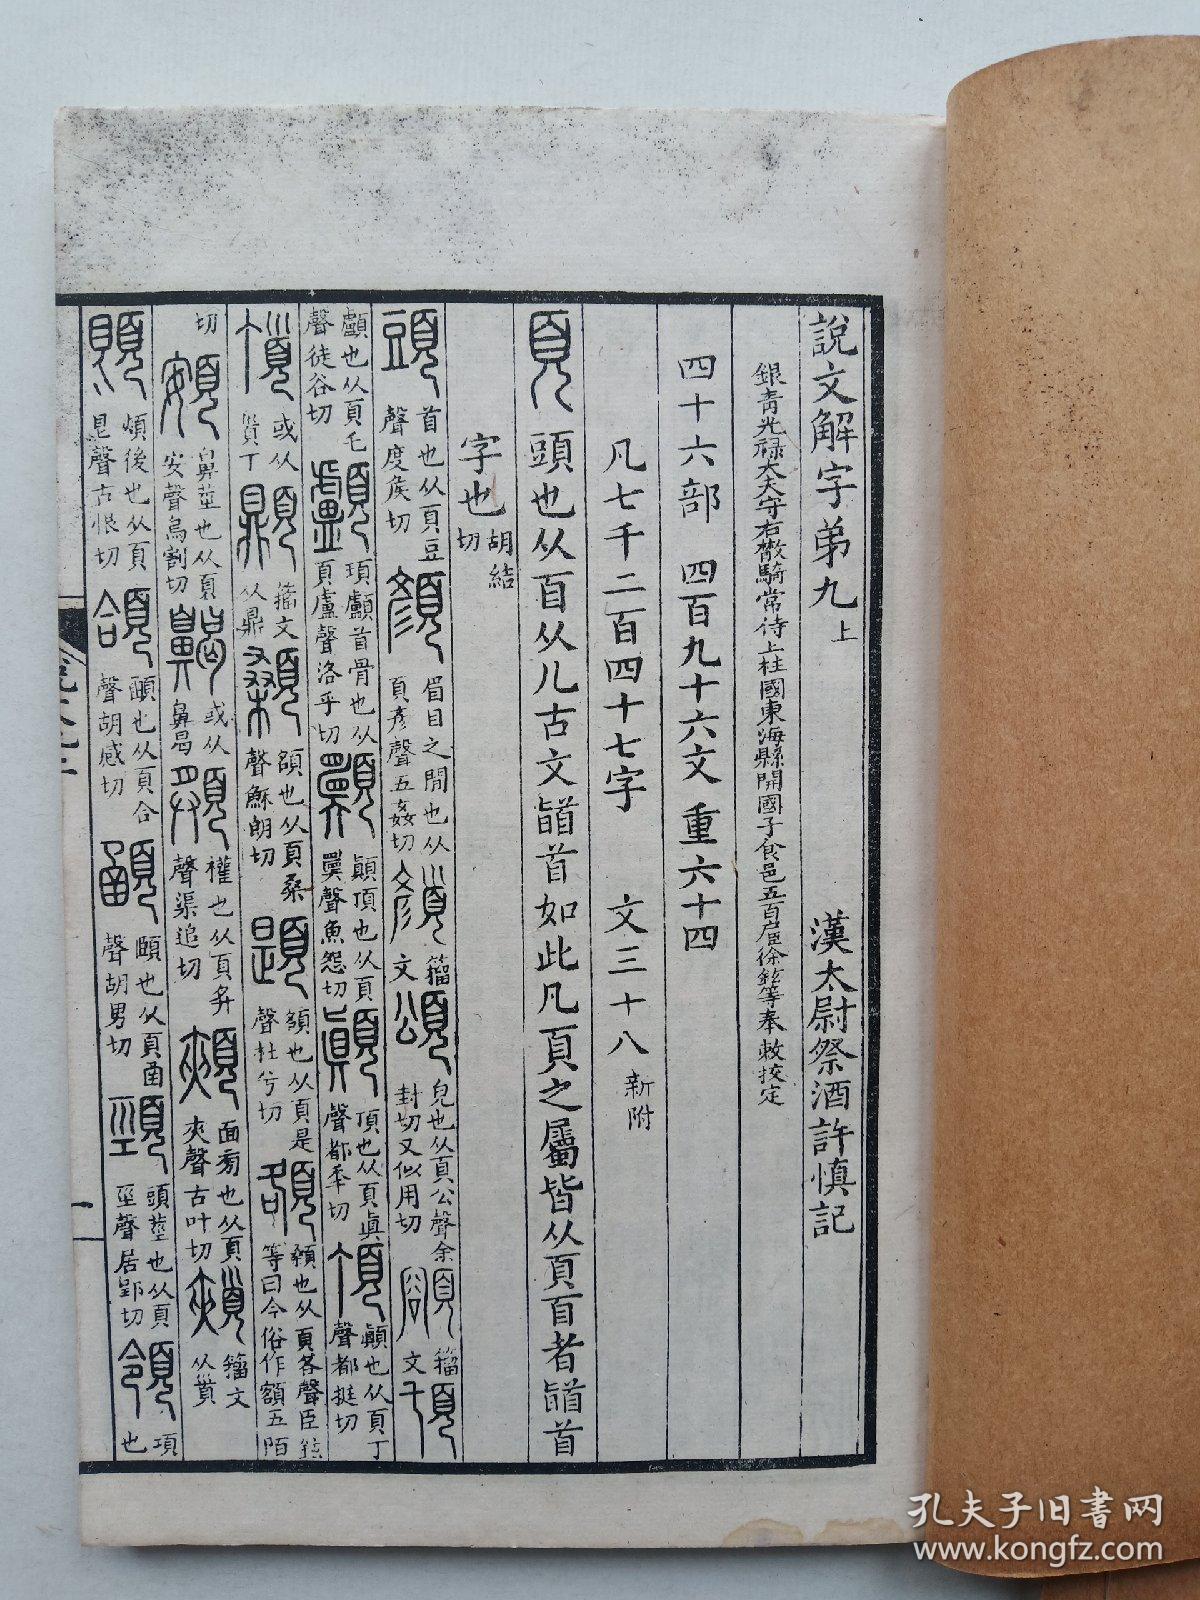 說文解字弟九上 漢太尉祭酒許慎記
銀青光祿大夫守右散騎常侍上柱國東海縣開國子食邑五百戶臣徐鉉等奉敕挍定
四十六部 四百九十六文 重六十四
凡七千二百四十七字 文三十八新附
頁 頭也从𦣻从儿古文䭫首如此凡頁之屬皆从頁𦣻者䭫首
字也胡結切
頭 首也从頁豆聲度矦切 顏 眉目之閒也从頁彥聲五姦切 𩕝 籒文 頌 皃也从頁公聲余封切又似用切 額 籒文 頊
顱也从頁乇聲徒谷切 顱 頊顱首骨也从頁盧聲洛乎切 顨 顚頂也从頁㬪聲魚怨切 顚 頂也从頁眞聲都秊切 頂 顚也从頁丁聲都挺切
或从𩠐丁 顁 籒文从鼎 顙 頟也从頁桑聲穌朗切 題 頟也从頁是聲杜兮切 頟 顙也从頁各聲臣鉉等曰今俗作額五陌
切 頞 鼻莖也从頁安聲烏割切 齃 或从鼻曷 頯 權也从頁𠬞聲渠追切 頰 面菊也从頁夾聲古叶切 籒文从𩠐
頣 頰後也从頁㫐聲古恨切 頜 䪴也从頁合聲胡感切 顄 頤也从頁圅聲胡男切 頸 頭莖也从頁巠聲居郢切 領 項也
孔夫子旧书网
www.kongfz.com